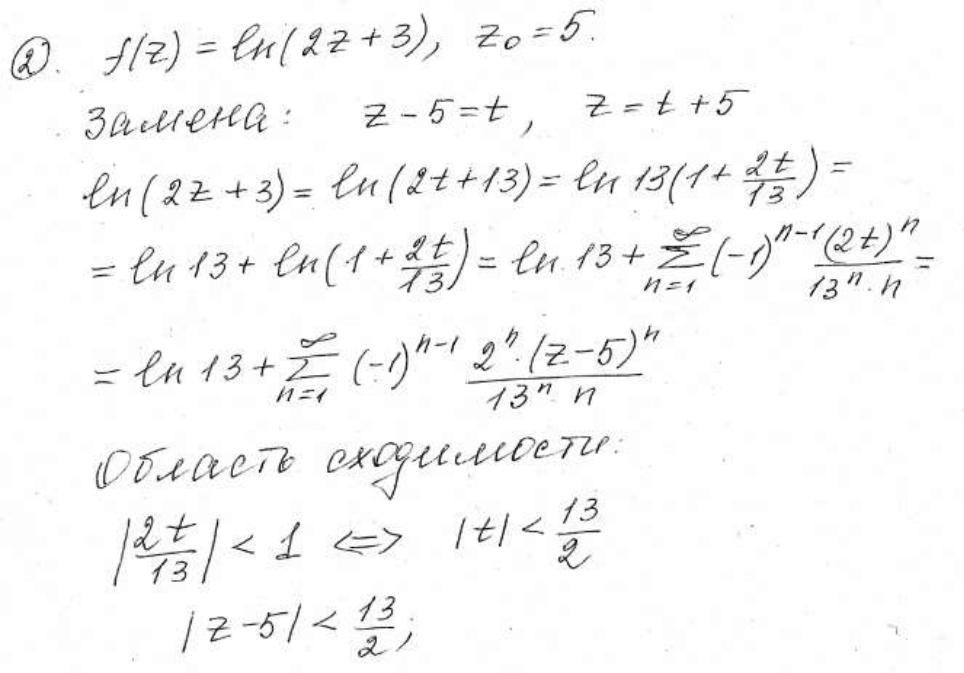 ②. f(z) = ln(2z+3), z₀ = 5.
Замена: z-5=t, z=t+5
ln(2z+3) = ln(2t+13) = ln 13(1+\frac{2t}{13}) =
= ln 13 + ln(1+\frac{2t}{13}) = ln 13 + \sum_{n=1}^{∞} (-1)^{n-1} \frac{(2t)^n}{13^n · n} =
= ln 13 + \sum_{n=1}^{∞} (-1)^{n-1} \frac{2^n · (z-5)^n}{13^n · n}
Область сходимости:
|\frac{2t}{13}| < 1 <=> |t| < \frac{13}{2}
|z-5| < \frac{13}{2};